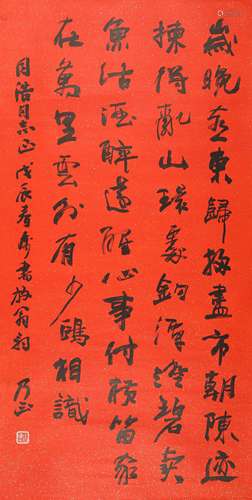 歲晚喜東歸掃盡市朝陳迹
揀得亂山環處釣潭澄碧賣
魚沽酒醉還醒心事付橫笛家
在萬里雲外有沙鷗相識
浩同志正 戊辰春書放翁詞 乃正